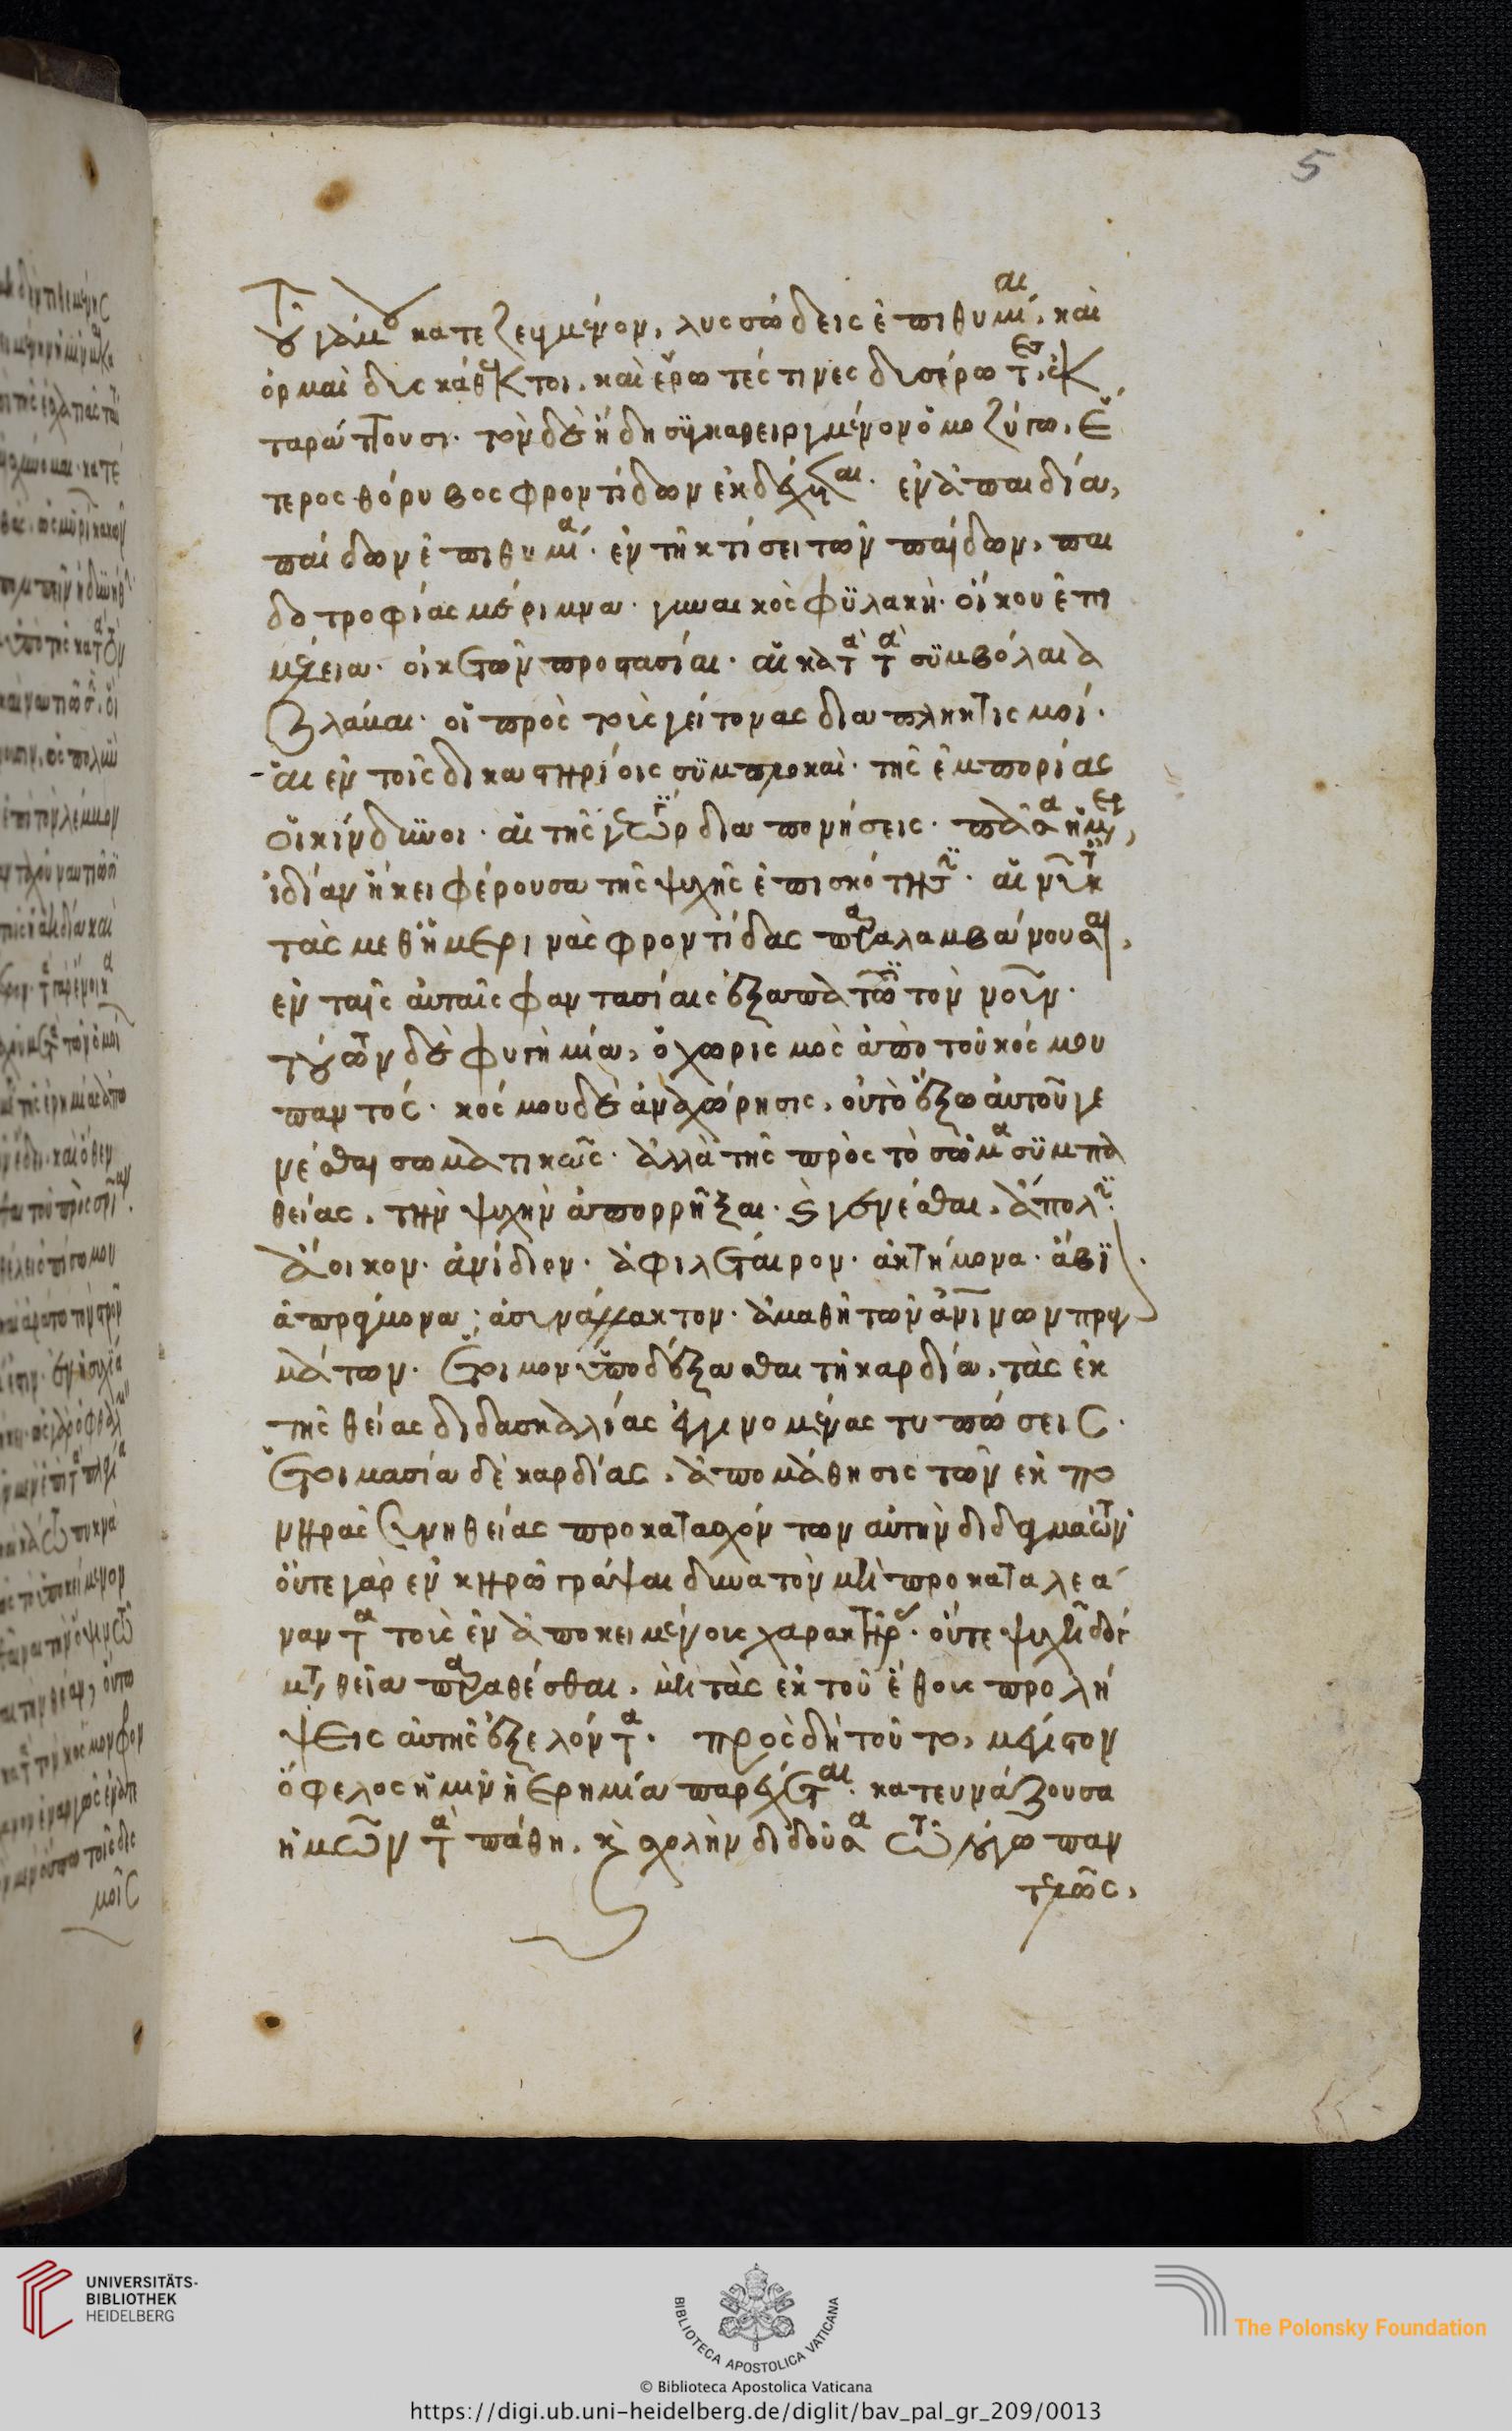 Τοῦ γάμου κατεζευγμένον, λυσσώδεις ἐπιθυμίαι, καὶ
ὁρμαὶ δυσκάθεκτοι, καὶ ἔρωτές τινες δυσέρωτες, ἐκ
ταράττουσι· τὸν δὲ ἤδη συγκαθειργμένον ὁμοζύγω, ἕ
τερος θόρυβος φροντίδων ἐκδέχεται· ἐν ἀπαιδία,
παίδων ἐπιθυμία· ἐν τῆ κτίσει τῶν παίδων, παι
δοτροφίας μέριμνα· γυναικὸς φυλακὴ· οἴκου ἐπι
μέλεια· οἰκετῶν προστασίαι· αἱ κατὰ τὰ συμβόλαια
βλάβαι· οἱ πρὸς τοὺς γείτονας διαπληκτισμοί·
αἱ ἐν τοῖς δικαστηρίοις συμπλοκαὶ· τῆς ἐμπορίας
οἱ κίνδυνοι· αἱ τῆς γεωργίας διαπονήσεις· πᾶσα ἡμέρα,
ἰδίαν ἥκει φέρουσα τῆς ψυχῆς ἐπισκότησιν· αἱ νύκτες
τὰς μεθημερινὰς φροντίδας παραλαμβάνουσαι,
ἐν ταῖς αὐταῖς φαντασίαις ἐξαπατῶσι τὸν νοῦν·
τούτων δὲ φυγὴ μία, ὁ χωρισμὸς ἀπὸ τοῦ κόσμου
παντός· κόσμου δὲ ἀναχώρησις, οὐ τὸ ἔξω αὐτοῦ γε
νέσθαι σωματικῶς· ἀλλὰ τῆς πρὸς τὸ σῶμα συμπα
θείας, τὴν ψυχὴν ἀπορρῆξαι· καὶ γενέσθαι, ἄπολιν·
ἄοικον· ἀνίδιον· ἀφιλέταιρον· ἀκτήμονα· ἄβιον·
ἀπράγμονα· ἀσυνάλλακτον· ἀμαθῆ τῶν ἀνθρωπίνων πραγ
μάτων· ἕτοιμον ὑποδέξασθαι τῆ καρδία, τὰς ἐκ
τῆς θείας διδασκαλίας ἐγγινομένας τυπώσεις·
ἑτοιμασία δὲ καρδίας, ἀπομάθησις τῶν ἐκ πο
νηρᾶς συνηθείας προκατασχόντων αὐτὴν διδαγμάτων·
οὔτε γὰρ ἐν κηρῶ γράψαι δυνατὸν μὴ προκαταλεά
ναντα τοὺς ἐναποκειμένους χαρακτῆρας· οὔτε ψυχῆ δόγ
ματα θεῖα παραθέσθαι, μὴ τὰς ἐκ τοῦ ἔθους προλή
ψεις αὐτῆς ἐξελόντα· πρὸς δὴ τοῦτο, μέγιστον
ὄφελος ἡμῖν ἡ ἐρημία παρέχεται· κατευνάζουσα
ἡμῶν τὰ πάθη, καὶ σχολὴν διδοῦσα τῶ λόγω παν
τελῶς,
5
UNIVERSITÄTS-
BIBLIOTHEK
HEIDELBERG
BIBLIOTECA APOSTOLICA VATICANA
The Polonsky Foundation
© Biblioteca Apostolica Vaticana
https://digi.ub.uni-heidelberg.de/diglit/bav_pal_gr_209/0013